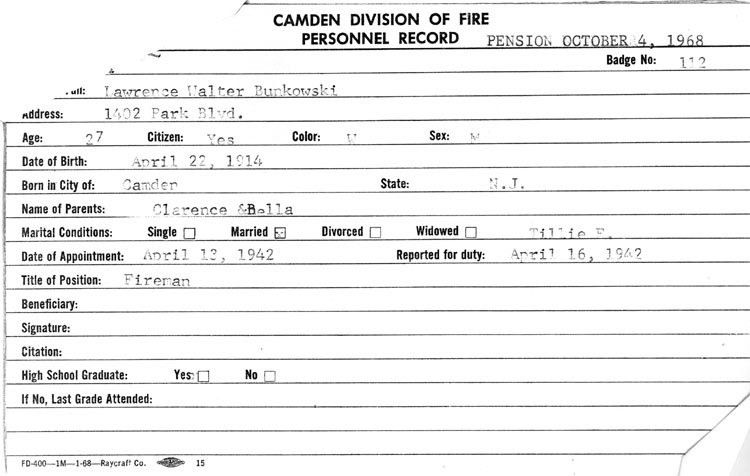 CAMDEN DIVISION OF FIRE
PERSONNEL RECORD PENSION OCTOBER 4, 1968
Badge No: 112
Lawrence Walter Bunkowski
Address: 1402 Park Blvd.
Age: 27 Citizen: Yes Color: W Sex: M
Date of Birth: April 22, 1914
Born in City of: Camden State: N.J.
Name of Parents: Clarence & Bella
Marital Conditions: Single Married Divorced Widowed Tillie F.
Date of Appointment: April 13, 1942 Reported for duty: April 16, 1942
Title of Position: Fireman
Beneficiary:
Signature:
Citation:
High School Graduate: Yes: No
If No, Last Grade Attended:
FD-400—1M—1-68—Raycraft Co. 15